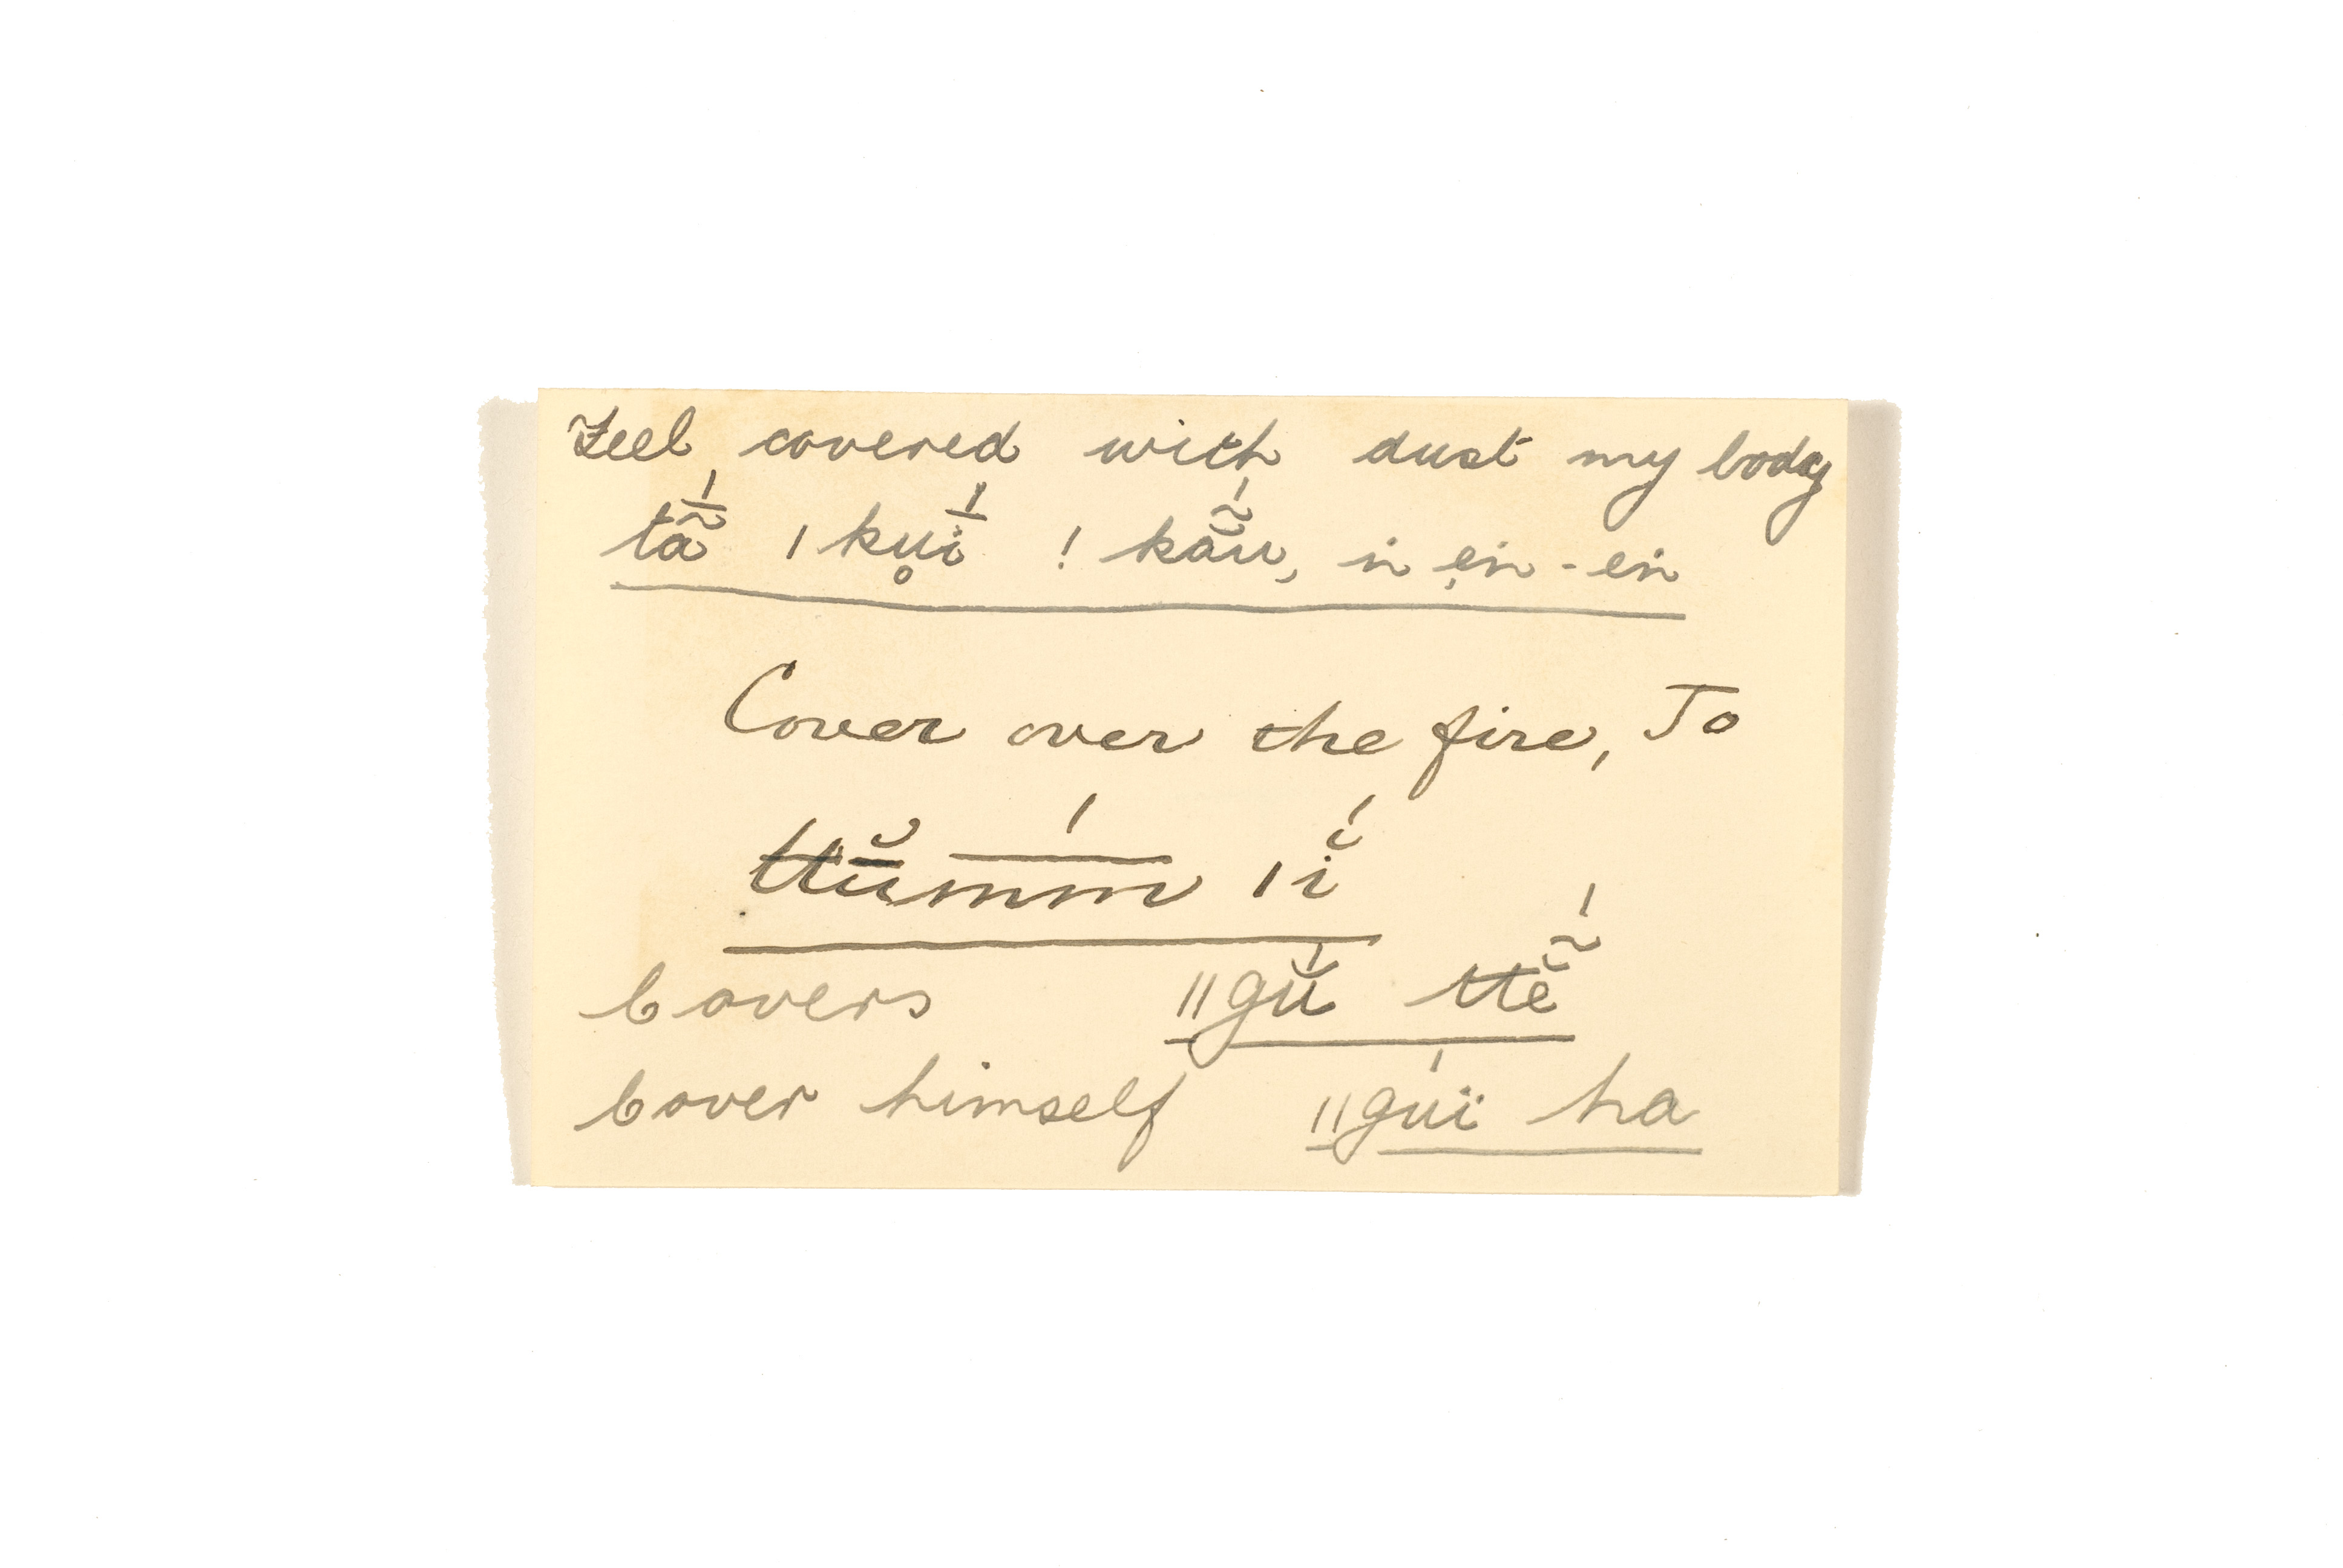 Feel covered with dust my body
tã̄́ ǀku̥ī́ ǃkãŭ́, n̄ e̩n-en
Cover over the fire, To
ttŭ̄m̄́m̄ ǀĭ́
Covers ǁgŭ́ ttĕ̃́
Cover himself ǁgúï ha